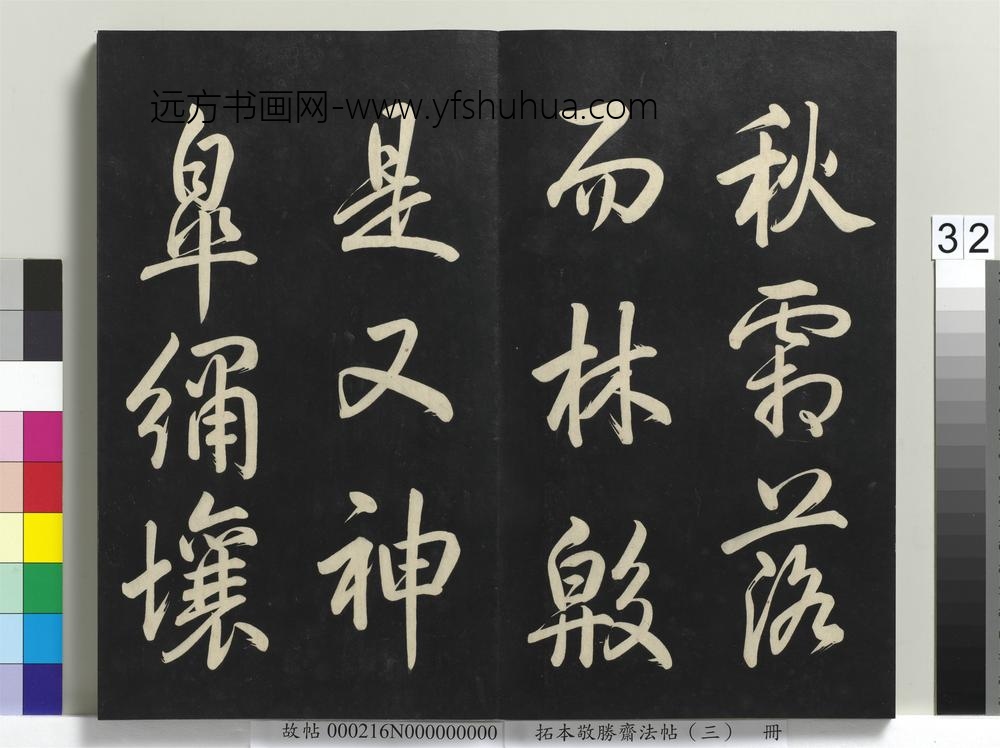 远方书画网-www.yfshuhua.com
秋霜落
而林殷
是又神
皐繡壤
32
故帖 000216N000000000 拓本敬勝齋法帖（三） 冊